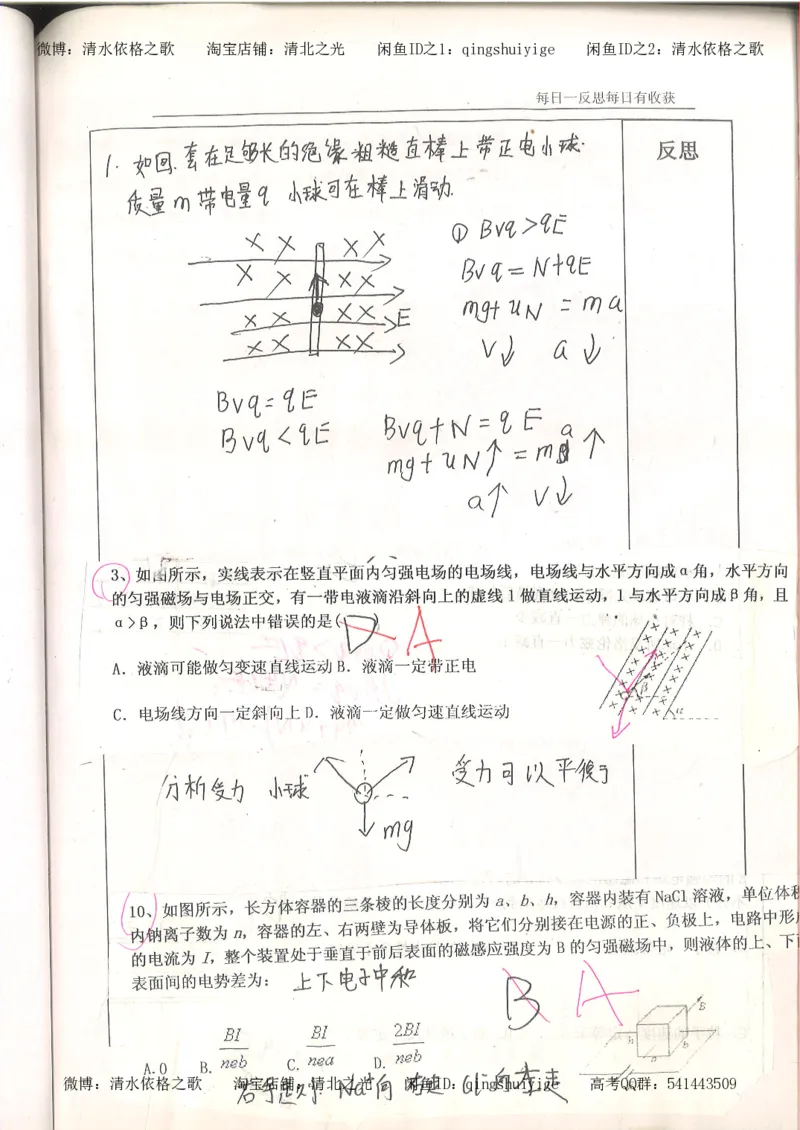 微博：清水依格之歌 淘宝店铺：清北之光 闲鱼ID之1：qingshuiyige 闲鱼ID之2：清水依格之歌
每日一反思每日有收获
反思
1. 如回.套在足够长的绝缘粗糙直棒上带正电小球.
质量m带电量q 小球可在棒上滑动.
① Bvq>qE
Bvq=N+qE
mg+uN=ma
v↓ a↓
E
Bvq=qE
Bvq<qE
Bvq+N=qE a↑
mg+uN↑=m
a↑ v↓
3、如图所示，实线表示在竖直平面内匀强电场的电场线，电场线与水平方向成α角，水平方向
的匀强磁场与电场正交，有一带电液滴沿斜向上的虚线l做直线运动，l与水平方向成β角，且
α>β，则下列说法中错误的是( D ) A
A．液滴可能做匀变速直线运动 B．液滴一定带正电
C．电场线方向一定斜向上 D．液滴一定做匀速直线运动
β
α
分析受力 小球
mg
受力可以平衡
10、如图所示，长方体容器的三条棱的长度分别为 a、b、h，容器内装有 NaCl 溶液，单位体积
内钠离子数为 n，容器的左、右两壁为导体板，将它们分别接在电源的正、负极上，电路中形
的电流为 I，整个装置处于垂直于前后表面的磁感应强度为 B 的匀强磁场中，则液体的上、下
表面间的电势差为： 上下电子中和
B A
A.0 B. BI/neb C. BI/nea D. 2BI/neb
B
h
b
a
微博：清水依格之歌 淘宝店铺：清北之光 闲鱼ID：qingshuiyige 高考QQ群：541443509